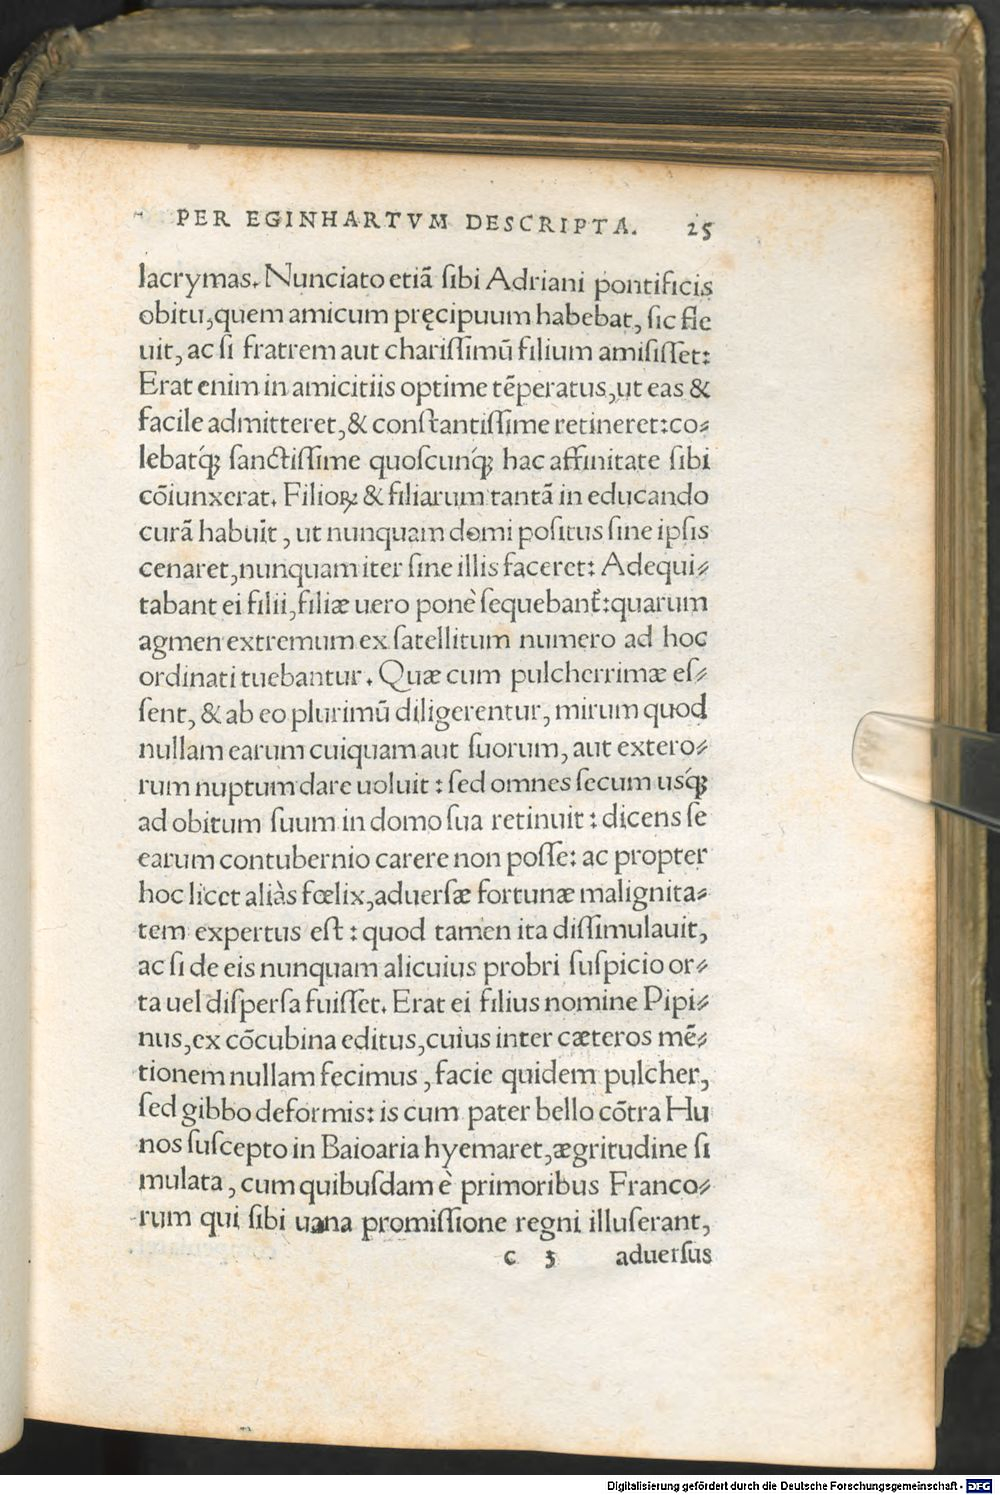 PER EGINHARTVM DESCRIPTA. 25
lacrymas. Nunciato etiā ſibi Adriani pontificis
obitu, quem amicum pręcipuum habebat, ſic fle
uit, ac ſi fratrem aut chariſſimū filium amiſiſſet:
Erat enim in amicitiis optime tēperatus, ut eas &
facile admitteret, & conſtantiſſime retineret: co⸗
lebatq́ꝫ ſanctiſſime quoſcunq́ꝫ hac affinitate ſibi
cōiunxerat. Filioꝝ & filiarum tantā in educando
curā habuit, ut nunquam domi poſitus ſine ipſis
cenaret, nunquam iter ſine illis faceret: Adequi⸗
tabant ei filii, filiæ uero ponè ſequebant᷑: quarum
agmen extremum ex ſatellitum numero ad hoc
ordinati tuebantur. Quæ cum pulcherrimæ eſ⸗
ſent, & ab eo plurimū diligerentur, mirum quod
nullam earum cuiquam aut ſuorum, aut extero⸗
rum nuptum dare uoluit: ſed omnes ſecum usq́ꝫ
ad obitum ſuum in domo ſua retinuit: dicens ſe
earum contubernio carere non poſſe: ac propter
hoc licet aliàs fœlix, aduerſæ fortunæ malignita⸗
tem expertus eſt: quod tamen ita diſſimulauit,
ac ſi de eis nunquam alicuius probri ſuſpicio or⸗
ta uel diſperſa fuiſſet. Erat ei filius nomine Pipi⸗
nus, ex cōcubina editus, cuius inter cæteros mē⸗
tionem nullam fecimus, facie quidem pulcher,
ſed gibbo deformis: is cum pater bello cōtra Hu
nos ſuſcepto in Baioaria hyemaret, ægritudine ſi
mulata, cum quibuſdam è primoribus Franco⸗
rum qui ſibi uana promiſſione regni illuſerant,
c 3 aduerſus
Digitalisierung gefördert durch die Deutsche Forschungsgemeinschaft - DFG